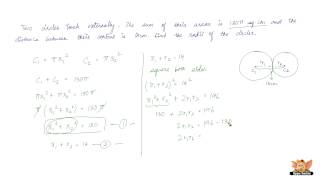 Two circles touch externally. The sum of their areas is 130π sq. cm. and the
distance between their centres is 14cm. find the radii of the circles.
C₁ = πr₁²    C₂ = πr₂²
C₁ + C₂ = 130π
πr₁² + πr₂² = 130π
π(r₁² + r₂²) = 130π
r₁² + r₂² = 130 — ①
r₁ + r₂ = 14 — ②
r₁ + r₂ = 14
square both sides
(r₁ + r₂)² = 14²
r₁² + r₂² + 2r₁r₂ = 196
130 + 2r₁r₂ = 196
2r₁r₂ = 196 - 130
2r₁r₂ =
r₁ r₂
14cm